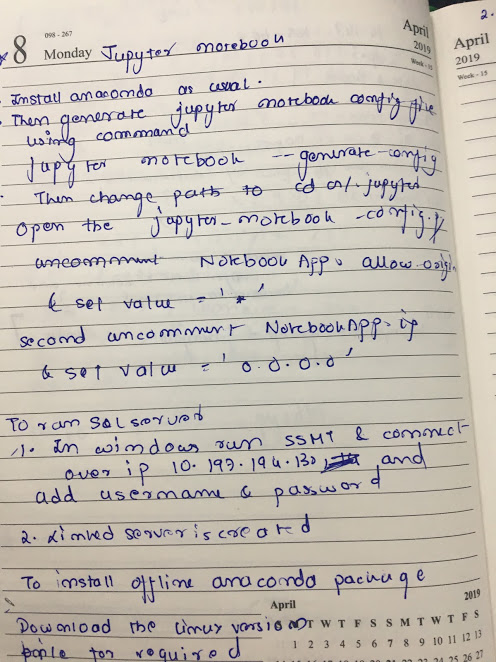 8
098 - 267
Monday
Jupyter notebook
April
2019
Week - 15
Install anaconda as usual.
Then generate jupyter notebook config file
using command
Jupyter notebook --generate-config
Then change path to cd .jupyter
open the jupyter-notebook-config.p
uncomment NotebookApp. allow-origin
& set value = '*'
second uncomment NotebookApp. ip
& set value = '0.0.0.0'
To run SQL server
1. In windows run SSMT & connect
over ip 10.193.194.130 and
add username & password
2. Linked server is created
To install offline anaconda package
Download the Linux version
for required
April
2019
T W T F S S M T W T F S S M T W T F S
1 2 3 4 5 6 7 8 9 10 11 12 13
25 26 27
2.
April
2019
Week - 15